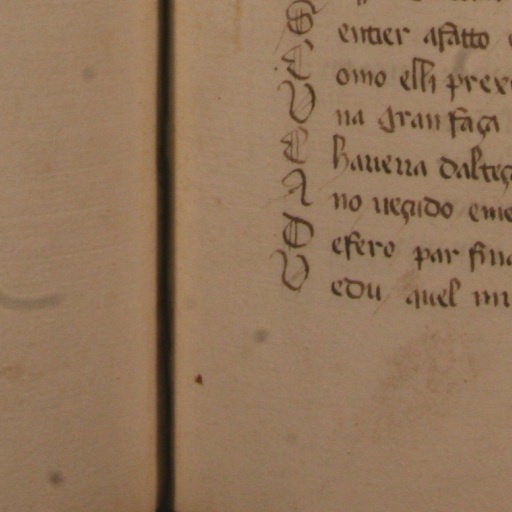 S entier afatto
C omo elli prex
V na gran faça
C haueua dalteç
A no ueçudo eme
D efero par fin
V edu quel mi